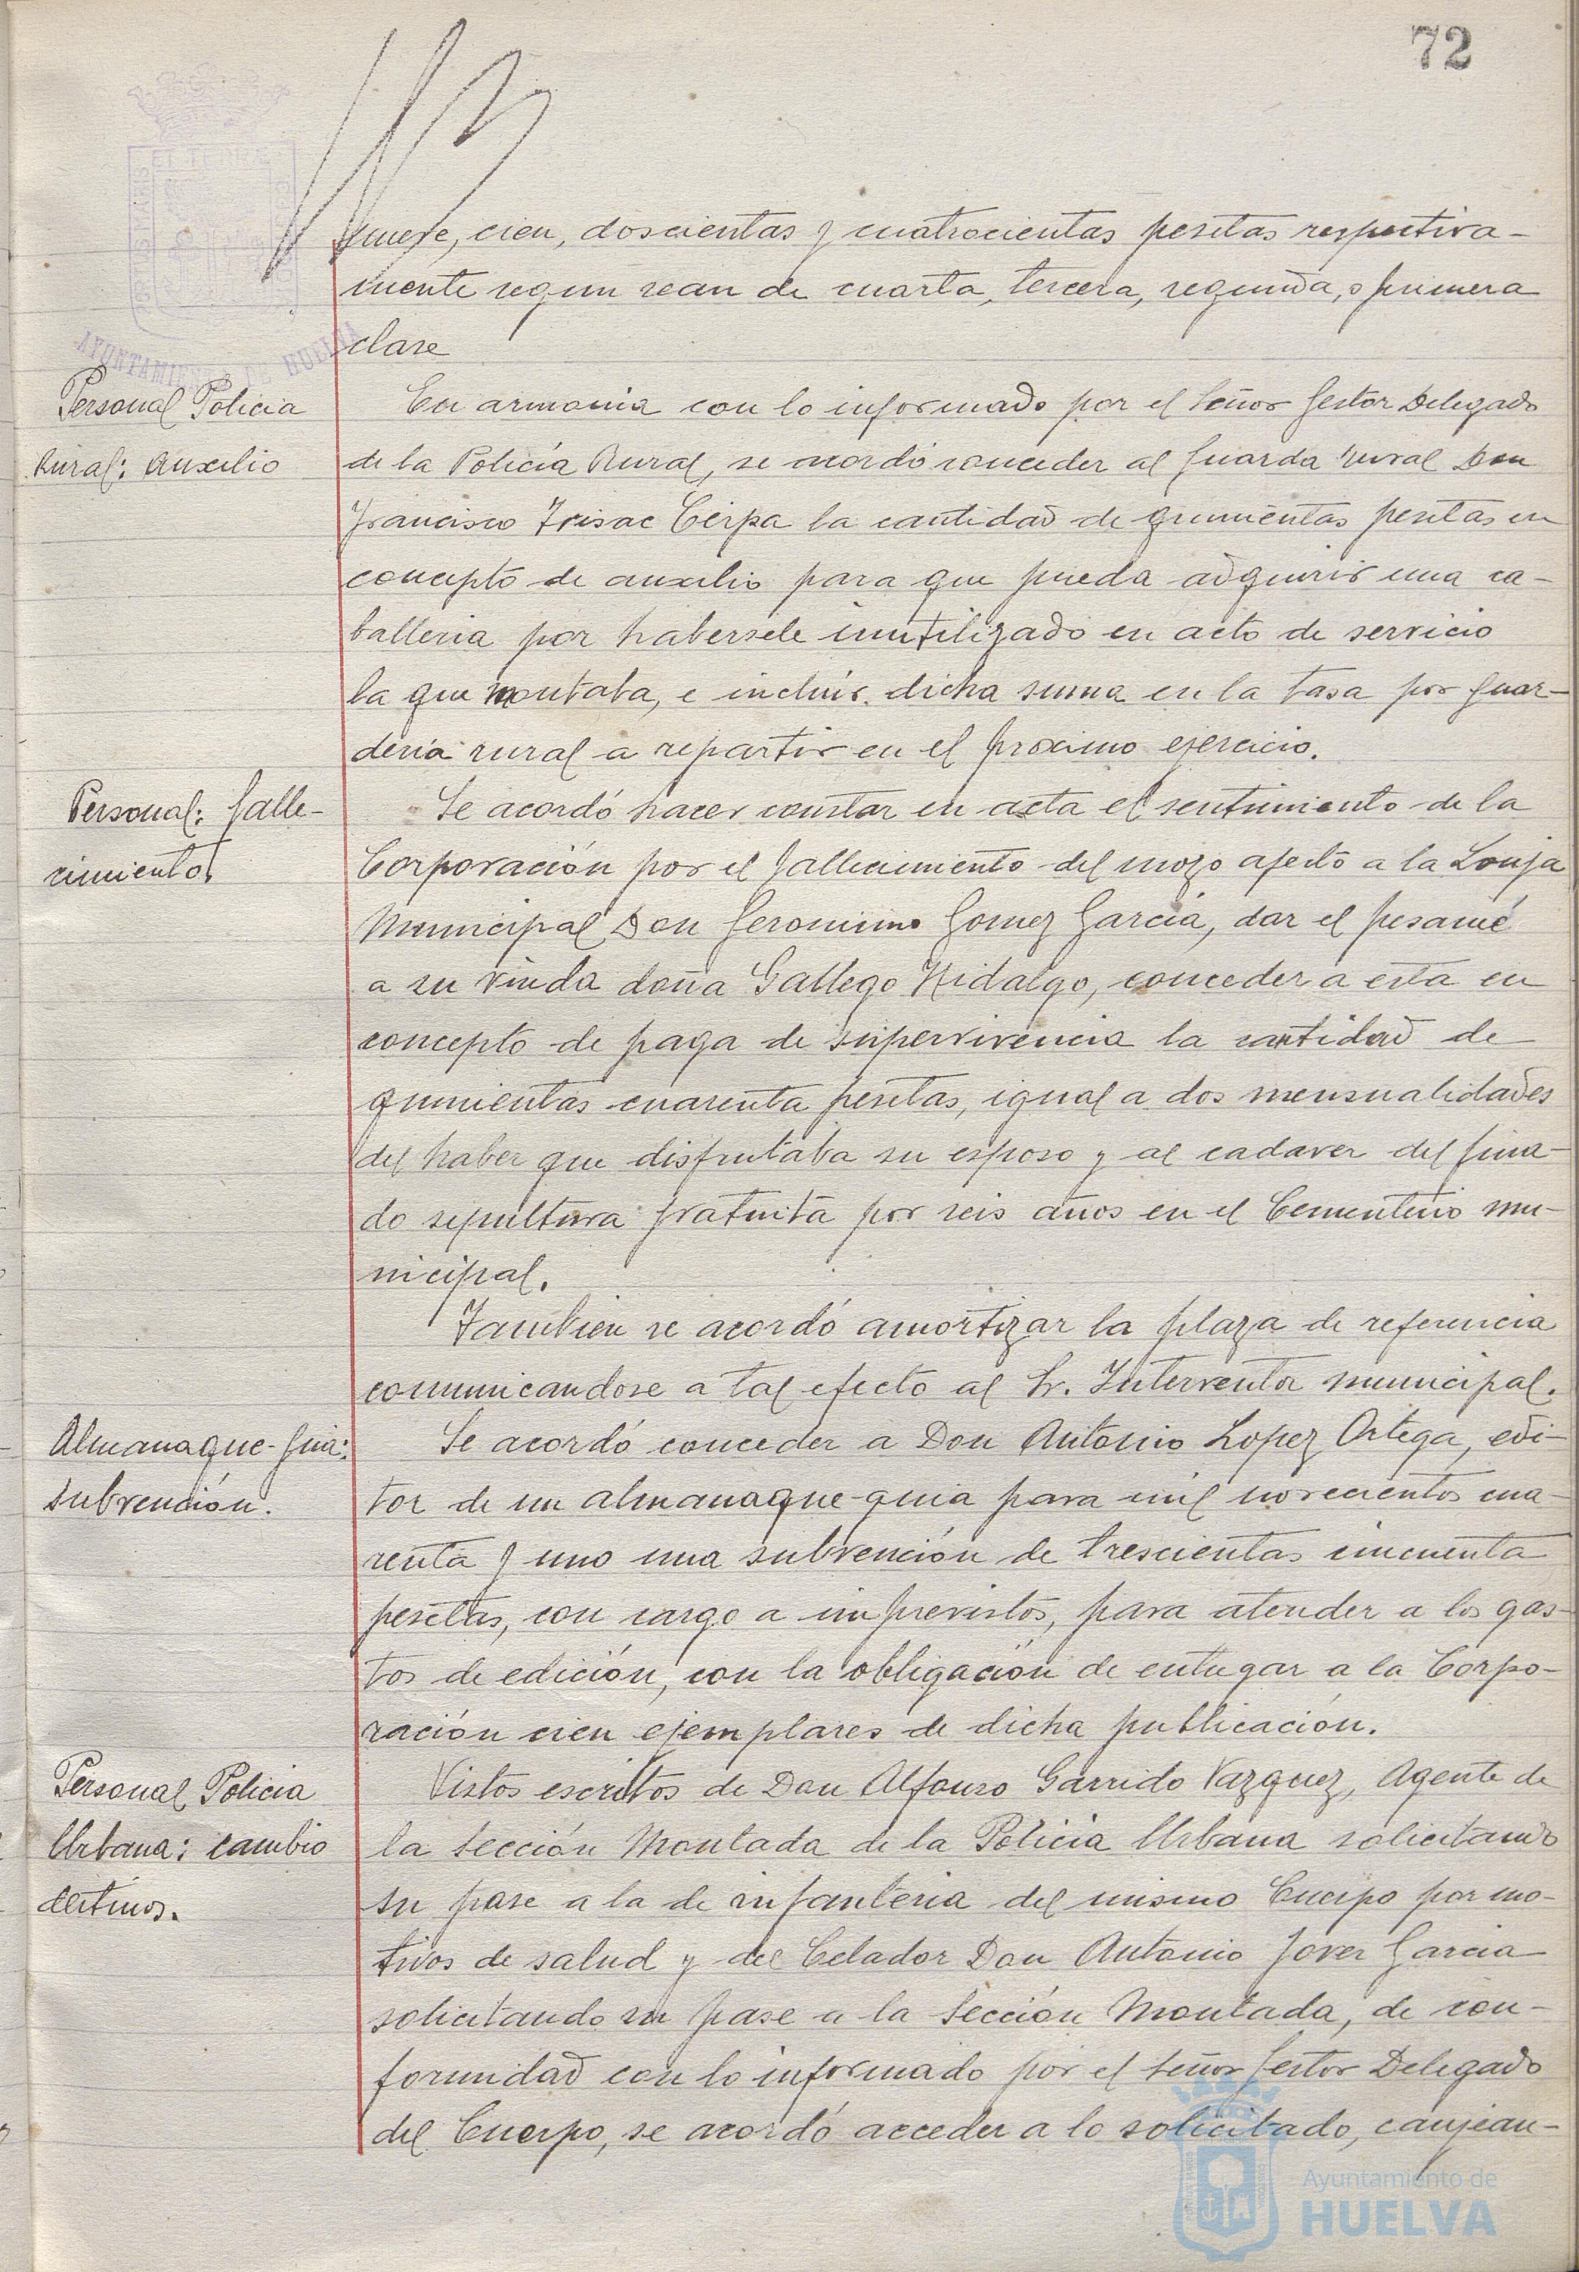 72
nueve, cien, doscientas y cuatrocientas pesetas respectiva-
mente segun sean de cuarta, tercera, segunda, o primera
clase
AYUNTAMIENTO DE HUELVA
Personal Policia
Rural: Auxilio
En armonia con lo informado por el Señor Gestor Delegado
de la Policía Rural, se acordó conceder al Guarda rural Don
Francisco Cerpa la cantidad de quinientas pesetas en
concepto de auxilio para que pueda adquirir una ca-
balleria por habersele inutilizado en acto de servicio
la que montaba, e incluir dicha suma en la tasa por guar-
deria rural a repartir en el proximo ejercicio.
Personal: falle-
cimiento
Se acordó hacer constar en acta el sentimiento de la
Corporación por el fallecimiento del mozo afecto a la Lonja
Municipal Don Geronimo Gomez García, dar el pesamé
a su viuda doña Gallego Hidalgo, conceder a esta en
concepto de paga de supervivencia la cantidad de
quinientas cuarenta pesetas, igual a dos mensualidades
del haber que disfrutaba su esposo y al cadaver del fina-
do sepultura gratuita por seis años en el Cementerio mu-
nicipal.
Tambien se acordó amortizar la plaza de referencia
comunicandose a tal efecto al Sr. Interventor municipal.
Almanaque-guia:
subvención.
Se acordó conceder a Don Antonio Lopez Ortega, edi-
tor de un almanaque-guia para mil novecientos cua-
renta y uno una subvención de trescientas cincuenta
pesetas, con cargo a imprevistos, para atender a los gas-
tos de edición, con la obligación de entregar a la Corpo-
ración cien ejemplares de dicha publicación.
Personal Policia
Urbana: cambio
destinos.
Vistos escritos de Don Alfonso Garrido Vazquez, Agente de
la Sección Montada de la Policia Urbana solicitando
su pase a la de infanteria del mismo Cuerpo por mo-
tivos de salud y del Celador Don Antonio Jover Garcia
solicitando su pase a la Sección Montada, de con-
formidad con lo informado por el Señor Gestor Delegado
del Cuerpo, se acordó acceder a lo solicitado, canjean-
Ayuntamiento de
HUELVA